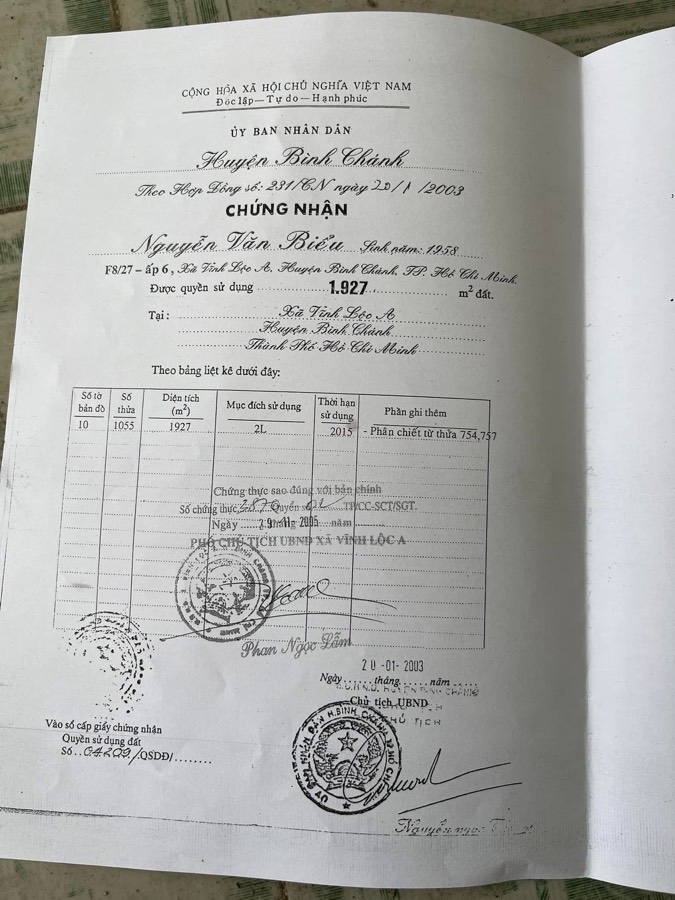 CỘNG HÒA XÃ HỘI CHỦ NGHĨA VIỆT NAM
Độc lập — Tự do — Hạnh phúc
ỦY BAN NHÂN DÂN
Huyện Bình Chánh
Theo Hợp Đồng số: 231/CN ngày 20/1/2003
CHỨNG NHẬN
Nguyễn Văn Biểu Sinh năm: 1958
F8/27 – ấp 6, Xã Vĩnh Lộc A, Huyện Bình Chánh, TP. Hồ Chí Minh.
Được quyền sử dụng 1.927 m² đất.
Tại: Xã Vĩnh Lộc A
Huyện Bình Chánh
Thành Phố Hồ Chí Minh
Theo bảng liệt kê dưới đây:
Số tờ bản đồ Số thửa Diện tích (m²) Mục đích sử dụng Thời hạn sử dụng Phần ghi thêm
10 1055 1927 2L 2015 - Phân chiết từ thửa 754,757
Chứng thực sao đúng với bản chính
Số chứng thực Quyển số TP/CC-SCT/SGT.
Ngày 29-11-2005 năm
PHÓ CHỦ TỊCH UBND XÃ VĨNH LỘC A
Phan Ngọc Lắm
20-01-2003
Ngày......tháng......năm......
Chủ tịch UBND
CHỦ TỊCH
Vào sổ cấp giấy chứng nhận
Quyền sử dụng đất
Số..04209/QSDĐ/........
Nguyễn ngọc